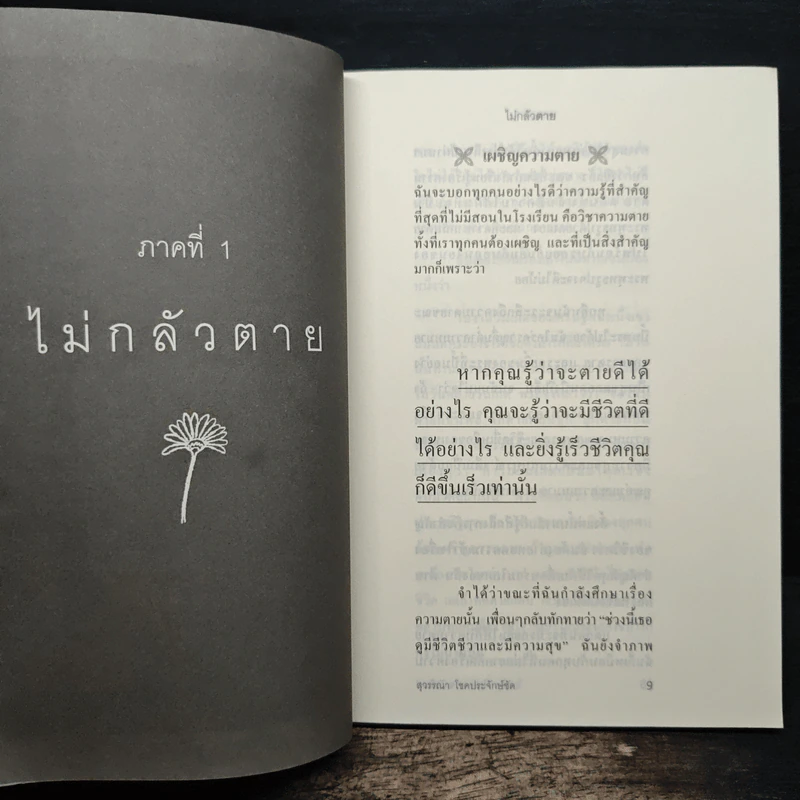 ภาคที่ 1
ไม่กลัวตาย
ไม่กลัวตาย
เผชิญความตาย
ฉันจะบอกทุกคนอย่างไรดีว่าความรู้ที่สำคัญ
ที่สุดที่ไม่มีสอนในโรงเรียน คือวิชาความตาย
ทั้งที่เราทุกคนต้องเผชิญ และที่เป็นสิ่งสำคัญ
มากก็เพราะว่า
หากคุณรู้ว่าจะตายดีได้
อย่างไร คุณจะรู้ว่าจะมีชีวิตที่ดี
ได้อย่างไร และยิ่งรู้เร็วชีวิตคุณ
ก็ดีขึ้นเร็วเท่านั้น
จำได้ว่าขณะที่ฉันกำลังศึกษาเรื่อง
ความตายนั้น เพื่อนๆกลับทักทายว่า "ช่วงนี้เธอ
ดูมีชีวิตชีวาและมีความสุข" ฉันยังจำภาพ
สุวรรณา โชคประจักษ์ชัด 9